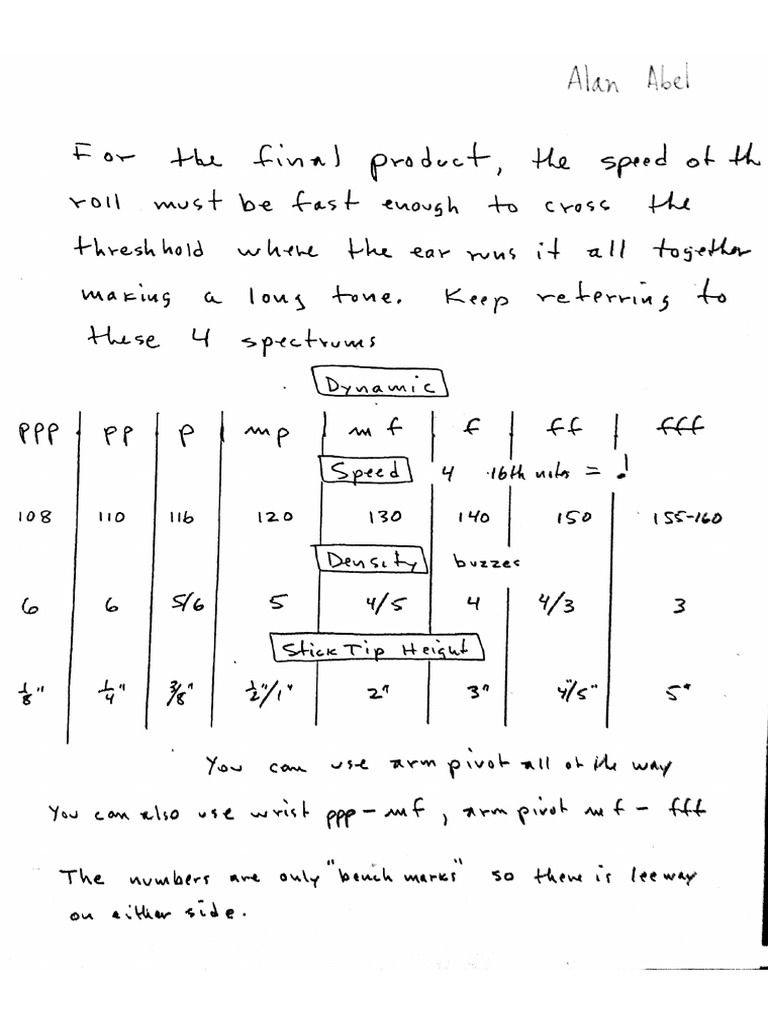 Alan Abel
For the final product, the speed of th
roll must be fast enough to cross the
threshhold where the ear runs it all together
making a long tone. Keep referring to
these 4 spectrums
Dynamic
ppp | pp | p | mp | mf | f | ff | fff
Speed 4 16th notes = ♩
108 110 116 120 130 140 150 155-160
Density buzzes
6 6 5/6 5 4/5 4 4/3 3
Stick Tip Height
1/8" 1/4" 3/8" 1/2"/1" 2" 3" 4"/5" 5"
You can use arm pivot all of the way
You can also use wrist ppp - mf, arm pivot mf - fff
The numbers are only "bench marks" so there is leeway
on either side.